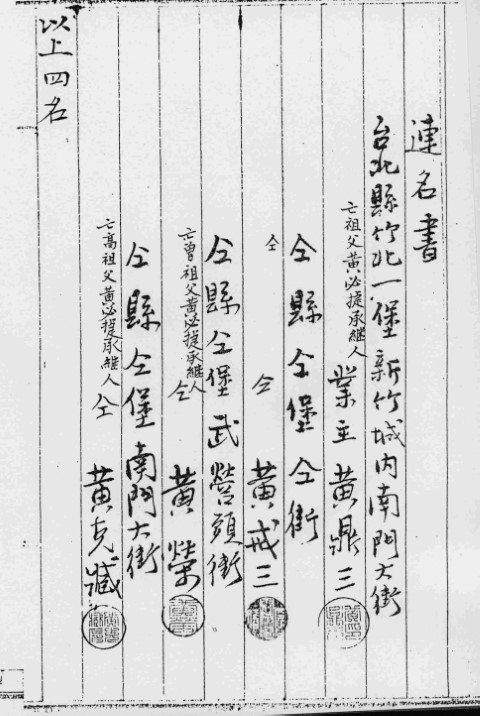 連名書
台北縣竹北一堡新竹城内南門大街
亡祖父黃必捷承繼人 業主 黃鼎三
仝縣仝堡仝街
仝 仝 黃戒三
仝縣仝堡武營頭街
亡曾祖父黃必捷承繼人 仝 黃榮
仝縣仝堡南門大街
亡高祖父黃必捷承繼人 仝 黃克臧
以上四名